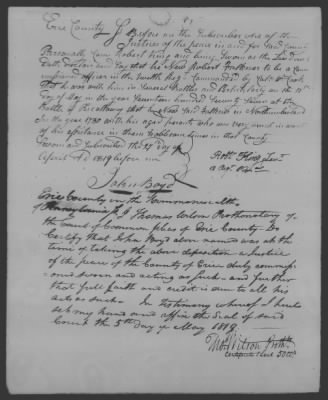 Erie County SS Before me the Subscriber one of the
Justices of the peace in and for said County
Personally Came Robert King and being Sworn as the Law Directs
Doth Declare and Say that he Did
officer in the twelfth Regt Commanded by Colo Wm Cook
that he was with him in General
day of in the year Seventeen hundred Seventy Seven at the
Battle of that
In the year 1780 with his aged parents who was very much in want
of his assistance in them troublesome times in that County
Sworn and Subscribed the 27 day of
April AD 1819 before me
Robt King Lieut
John Boyd
Erie County in the Commonwealth
of Pennsylvania SS I Thomas Wilson Prothonotary of
the court of Common pleas of Erie County Do
Certify that John Boyd above named was at the
time of taking the above deposition a Justice
of the peace of the County of Erie duly commis-
sioned sworn and acting as such and further
that full faith and credit is due to all his
acts as such. In testimony whereof I have
set my hand and affix the Seal of said
Court the 5th Day of May 1819.
Tho Wilson Proth